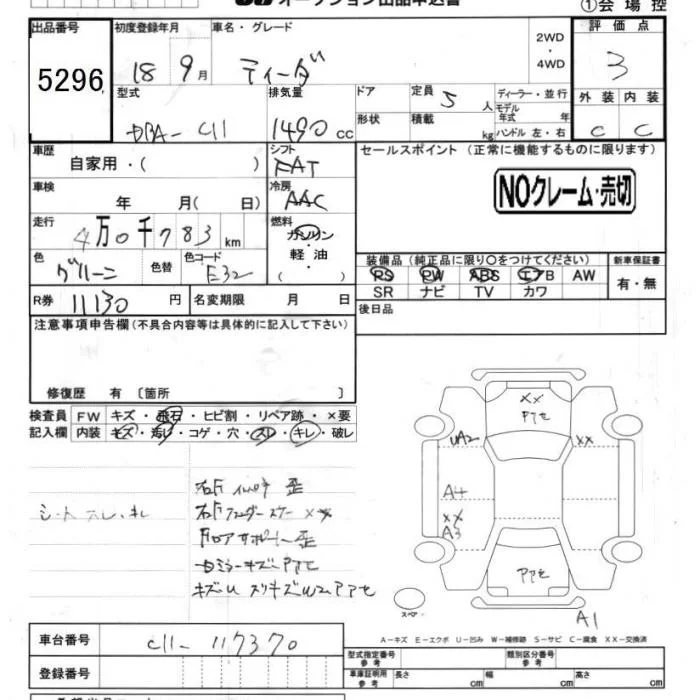 オークション出品申込書
①会場控
出品番号
5296
初度登録年月
18 9月
車名・グレード
ティーダ
2WD
・
4WD
評価点
3
型式
DBA-C11
排気量
1490cc
ドア
形状
定員 5人
積載 kg
ディーラー・並行
モデル年式 年
ハンドル 左・右
外装 内装
C C
車歴
自家用・( )
シフト
FAT
セールスポイント (正常に機能するものに限ります)
NOクレーム・売切
車検
年 月( 日)
冷房
AAC
走行
4万0千783km
燃料
ガソリン
軽油
・( )
色
グリーン
色替
色コード
E32
装備品(純正品に限り○をつけてください)
新車保証書
PS PW ABS エアB AW
SR ナビ TV カワ
有・無
R券 11130円
名変期限 月 日
後日品
注意事項申告欄(不具合内容等は具体的に記入して下さい)
修復歴 有 〔箇所 〕
検査員
記入欄
FW キズ・飛石・ヒビ割・リペア跡・×要
内装 キズ・汚レ・コゲ・穴・スレ・キレ・破レ
XX
アアセ
UA2
XX
A4
XX
A3
アアセ
A1
スペア
A-キズ E-エクボ U-凹み W-補修跡 S-サビ C-腐食 XX-交換済
車台番号
C11-117370
登録番号
型式指定番号
参考
類別区分番号
参考
車庫証明用
参考
長さ cm
幅 cm
高さ cm